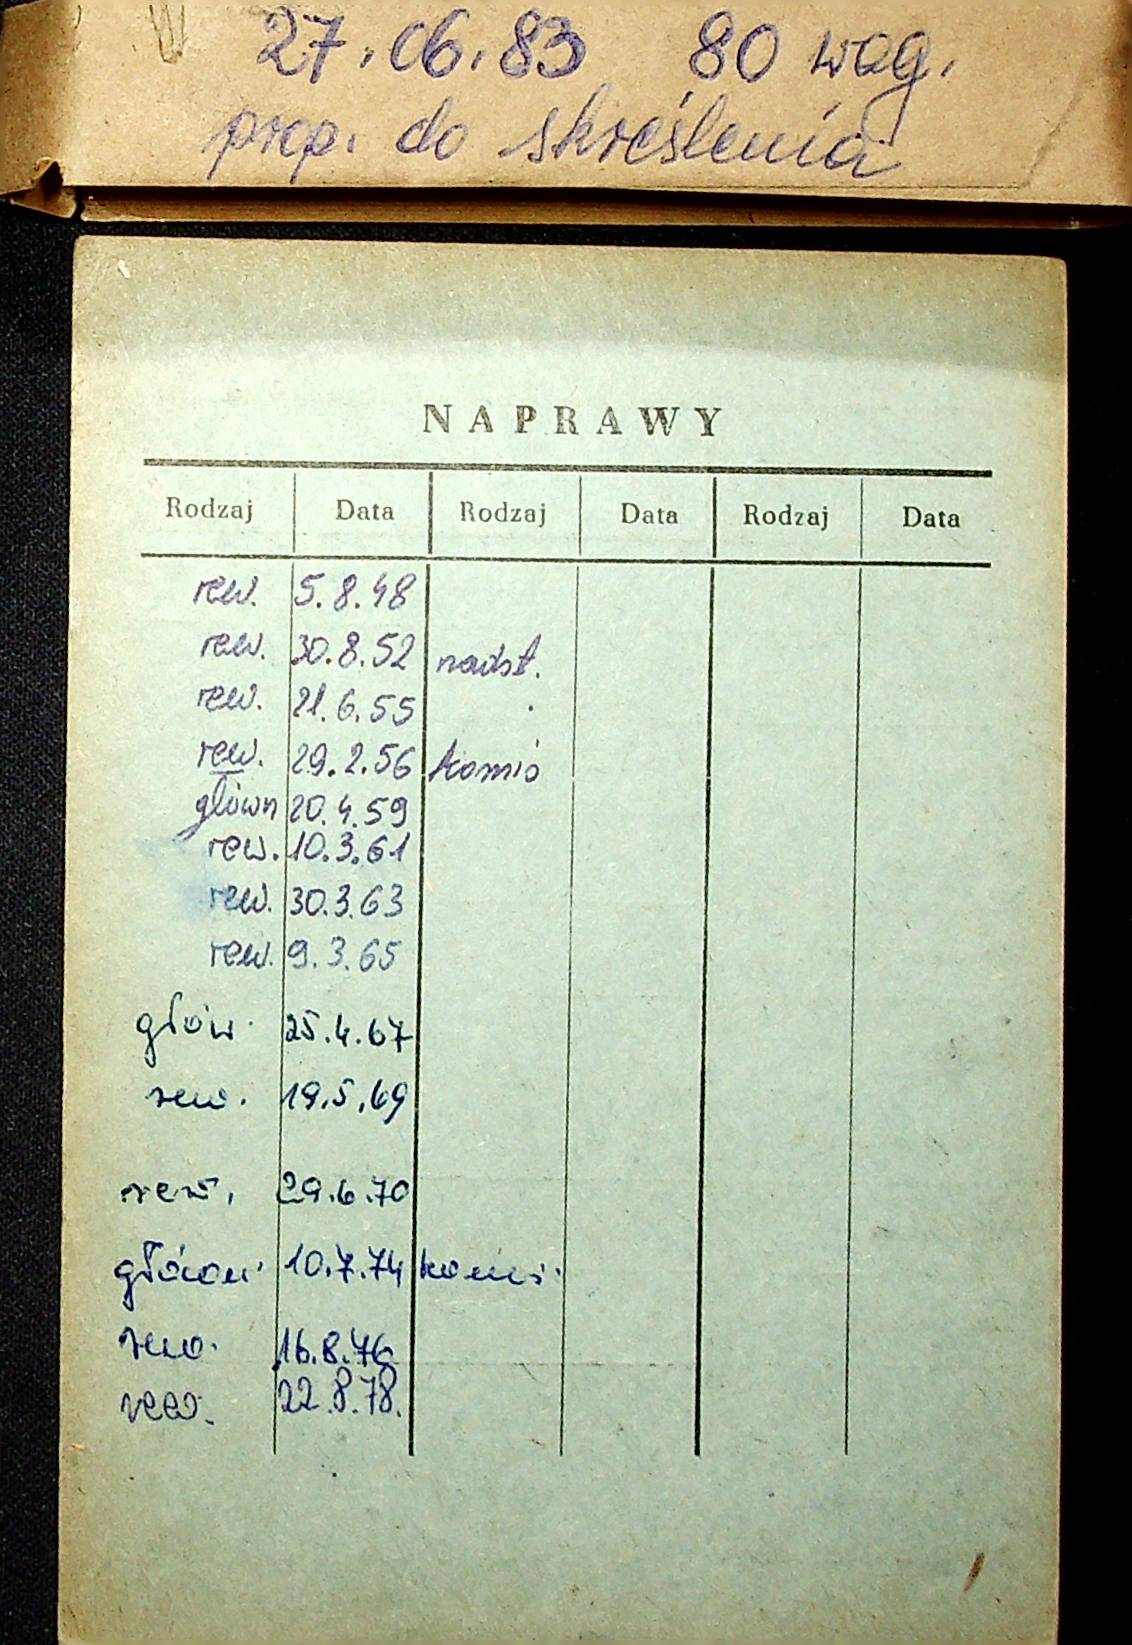 27.06.83 80 wag.
prop. do skreślenia
NAPRAWY
Rodzaj Data Rodzaj Data Rodzaj Data
rew. 5.8.48
rew. 30.8.52 nadst.
rew. 21.6.55
rew. 29.2.56
główn 20.4.59
rew. 10.3.61
rew. 30.3.63
rew. 9.3.65
głów. 25.4.67
rew. 19.5.69
rew. 29.6.70
główn. 10.7.74
rew. 16.8.76
rew. 22.8.78.